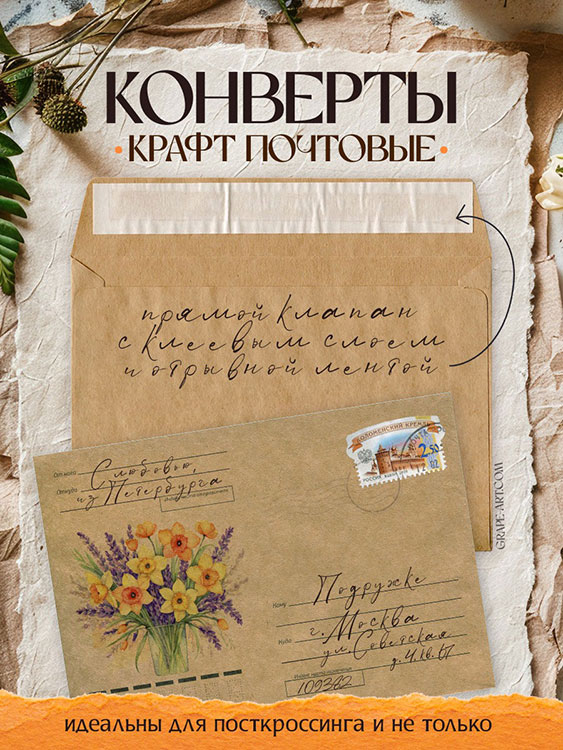 КОНВЕРТЫ
• КРАФТ ПОЧТОВЫЕ •
прямой клапан
с клеевым слоем
и отрывной лентой
GRAPE-ART.COM
КОЛОМЕНСКИЙ КРЕМЛЬ
ПОЧТА
2,50
РОССИЯ
От кого С любовью,
Откуда из Петербурга
Кому Подружке
Куда г. Москва
ул. Советская
д. 4. кв. 67
109382
идеальны для посткроссинга и не только